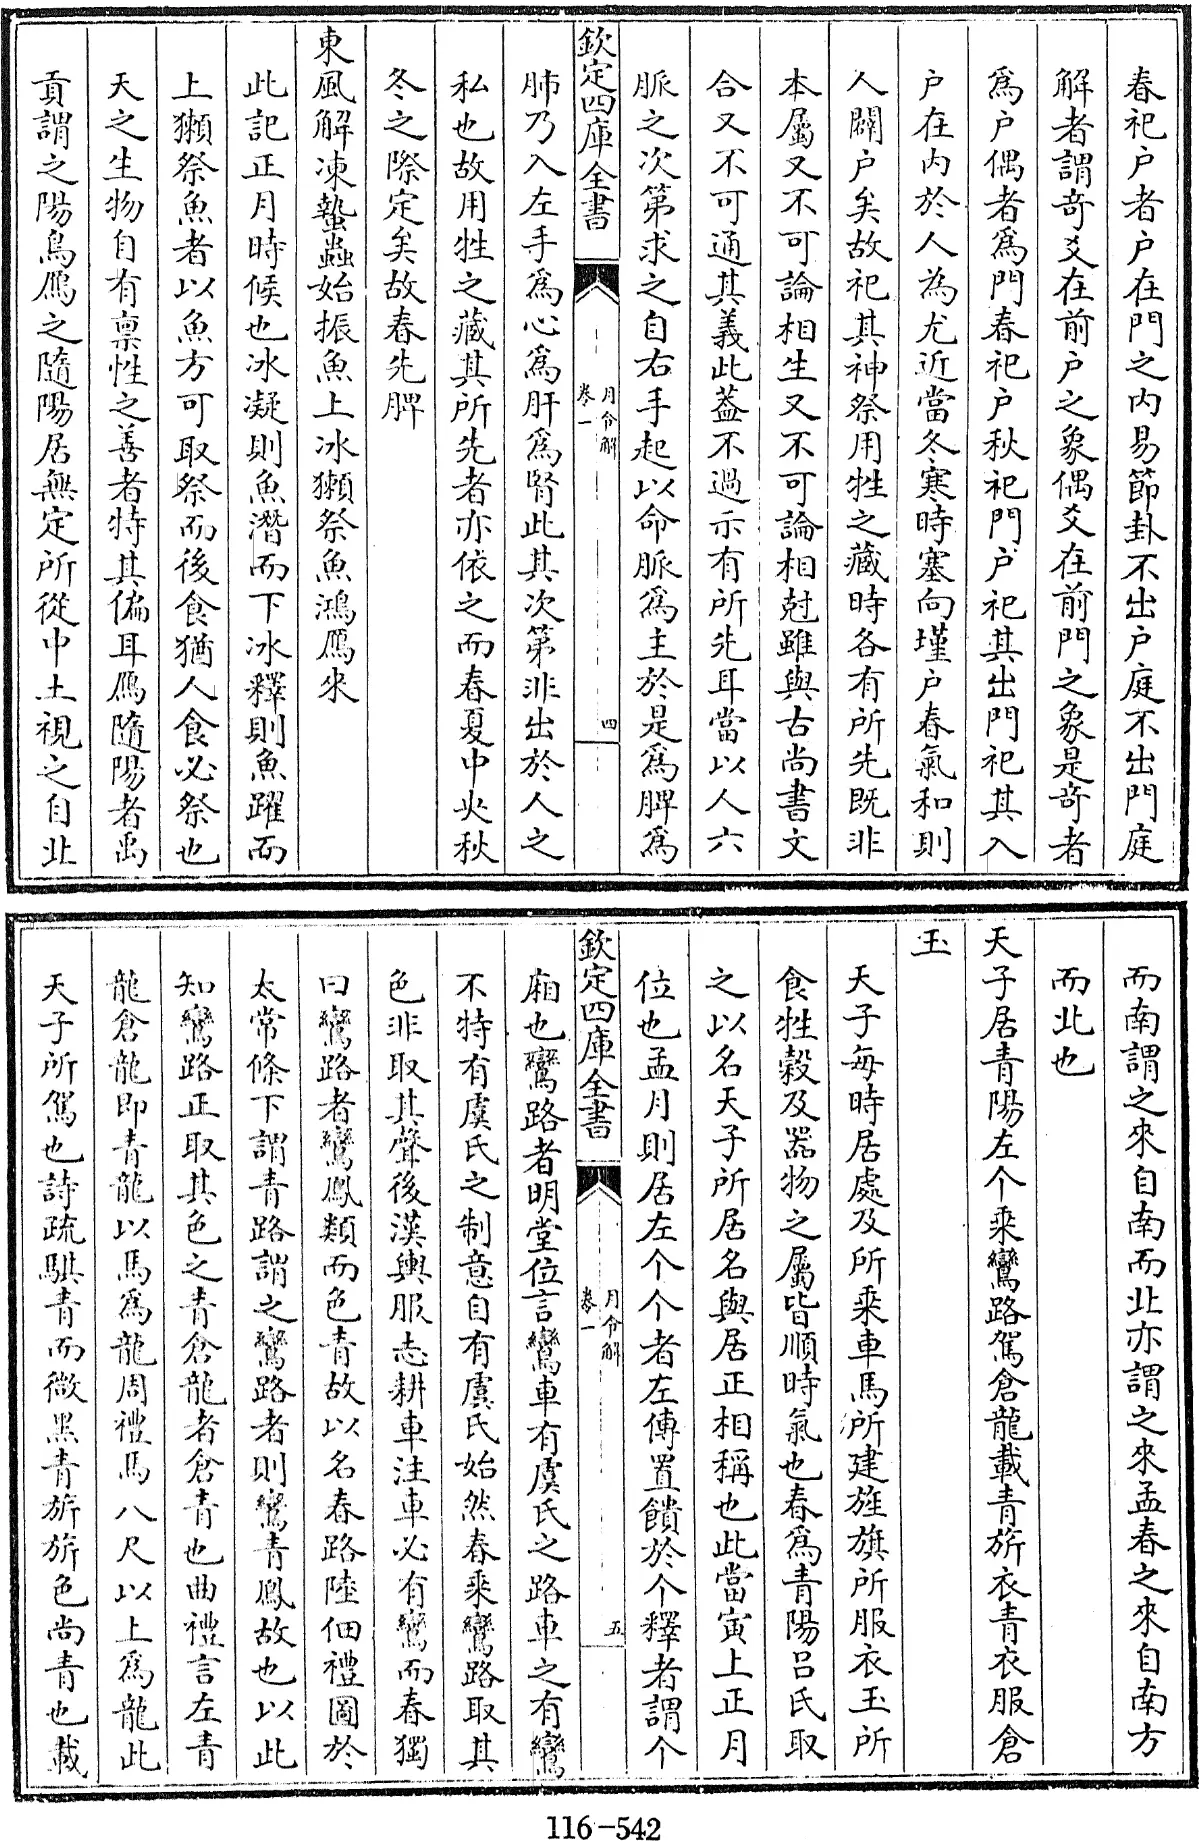 春祀户者户在門之内易節卦不出户庭不出門庭
解者謂竒爻在前户之象偶爻在前門之象是竒者
爲户偶者爲門春祀户秋祀門户祀其出門祀其入
户在内於人為尤近當冬寒時塞向墐户春氣和則
人闢户矣故祀其神祭用牲之藏時各有所先既非
本屬又不可論相生又不可論相尅雖與古尚書文
合又不可通其義此蓋不過示有所先耳當以人六
脈之次第求之自右手起以命脈爲主於是爲脾爲
欽定四庫全書
月令解
卷一
四
肺乃入左手爲心爲肝爲腎此其次第非出於人之
私也故用牲之藏其所先者亦依之而春夏中火秋
冬之際定矣故春先脾
東風解凍蟄蟲始振魚上冰獺祭魚鴻鴈來
此記正月時候也冰凝則魚潛而下冰釋則魚躍而
上獺祭魚者以魚方可取祭而後食猶人食必祭也
天之生物自有禀性之善者特其偏耳鴈隨陽者禹
貢謂之陽鳥鴈之隨陽居無定所從中土視之自北
而南謂之來自南而北亦謂之來孟春之來自南方
而北也
天子居青陽左个乘鸞路駕倉龍載青旂衣青衣服倉
玉
天子每時居處及所乘車馬所建旌旗所服衣玉所
食牲穀及器物之屬皆順時氣也春爲青陽吕氏取
之以名天子所居名與居正相稱也此當寅上正月
位也孟月則居左个个者左傳置饋於个釋者謂个
欽定四庫全書
月令解
卷一
五
廂也鸞路者明堂位言鸞車有虞氏之路車之有鸞
不特有虞氏之制意自有虞氏始然春乘鸞路取其
色非取其聲後漢輿服志耕車注車必有鸞而春獨
曰鸞路者鸞鳳類而色青故以名春路陸佃禮圖於
太常條下謂青路謂之鸞路者則鸞青鳳故也以此
知鸞路正取其色之青倉龍者倉青也曲禮言左青
龍倉龍即青龍以馬爲龍周禮馬八尺以上爲龍此
天子所駕也詩疏騏青而微黑青旂旂色尚青也載
116-542